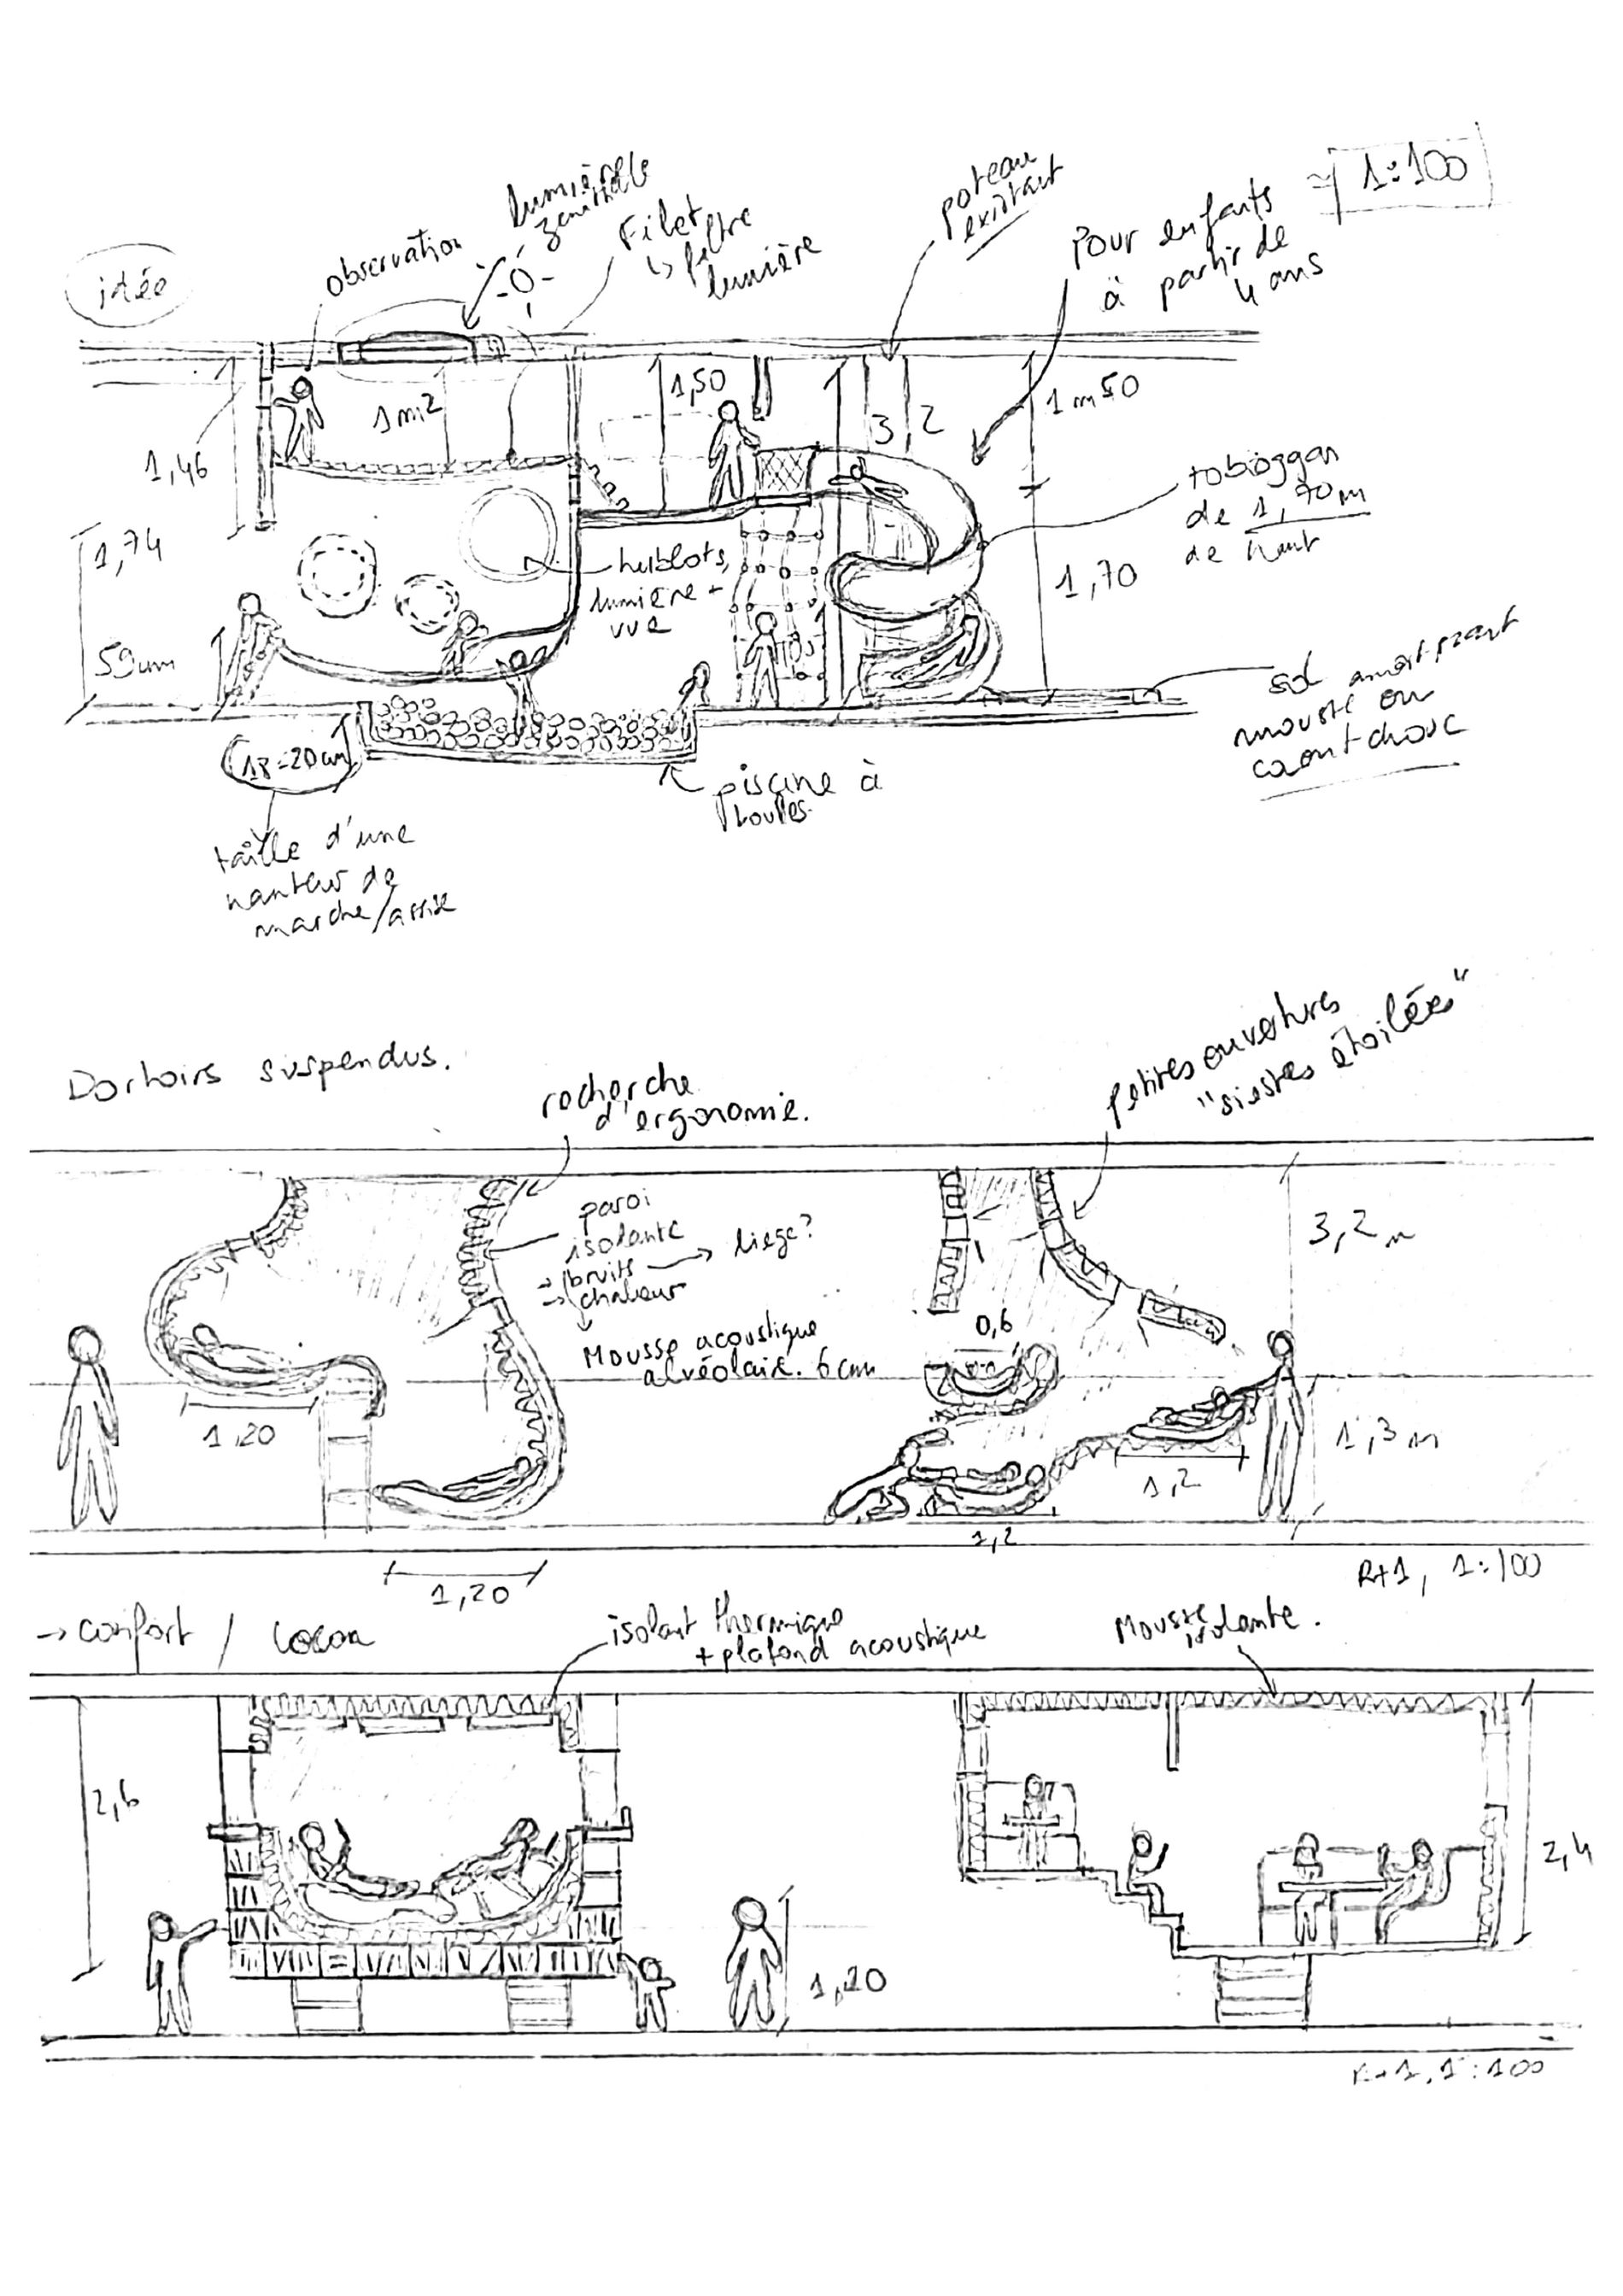 idée
observation
lumière
zénithale
Filet
↳ filtre
lumière
poteau
existant
Pour enfants
à partir de
4 ans
1:100
1,46
1 m2
1,50
3,2
1 m 50
1,74
59 cm
hublots,
lumière +
vue
toboggan
de 1,70 m
de haut
1,70
sol amortissant
mousse ou
caoutchouc
18-20 cm
taille d'une
hauteur de
marche/assise
piscine à
boules
Dortoirs suspendus.
recherche
d'ergonomie.
petites ouvertures
"siestes étoilées"
paroi
isolante
→ bruits → liège?
→ chaleur
Mousse acoustique
alvéolaire. 6 cm
1,20
1,20
0,6
1,2
1,2
3,2 m
1,3 m
R+1, 1:100
→ confort / cocon
isolant thermique
+ plafond acoustique
Mousse
isolante.
2,6
1,20
2,4
R+1, 1:100